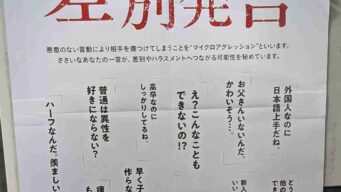 差別発言
悪意のない言動により相手を傷つけてしまうことを"マイクロアグレッション"といいます。
ささいなあなたの一言が、差別やハラスメントへつながる可能性を秘めています。
外国人なのに
日本語上手だね。
お父さんいないんだ。
かわいそう…。
え？こんなことも
できないの!?
高卒なのに
しっかりしてるね。
普通は異性を
好きにならない？
ハーフなんだ。羨ましい
早く子
作らな
疲
も
新人
いい